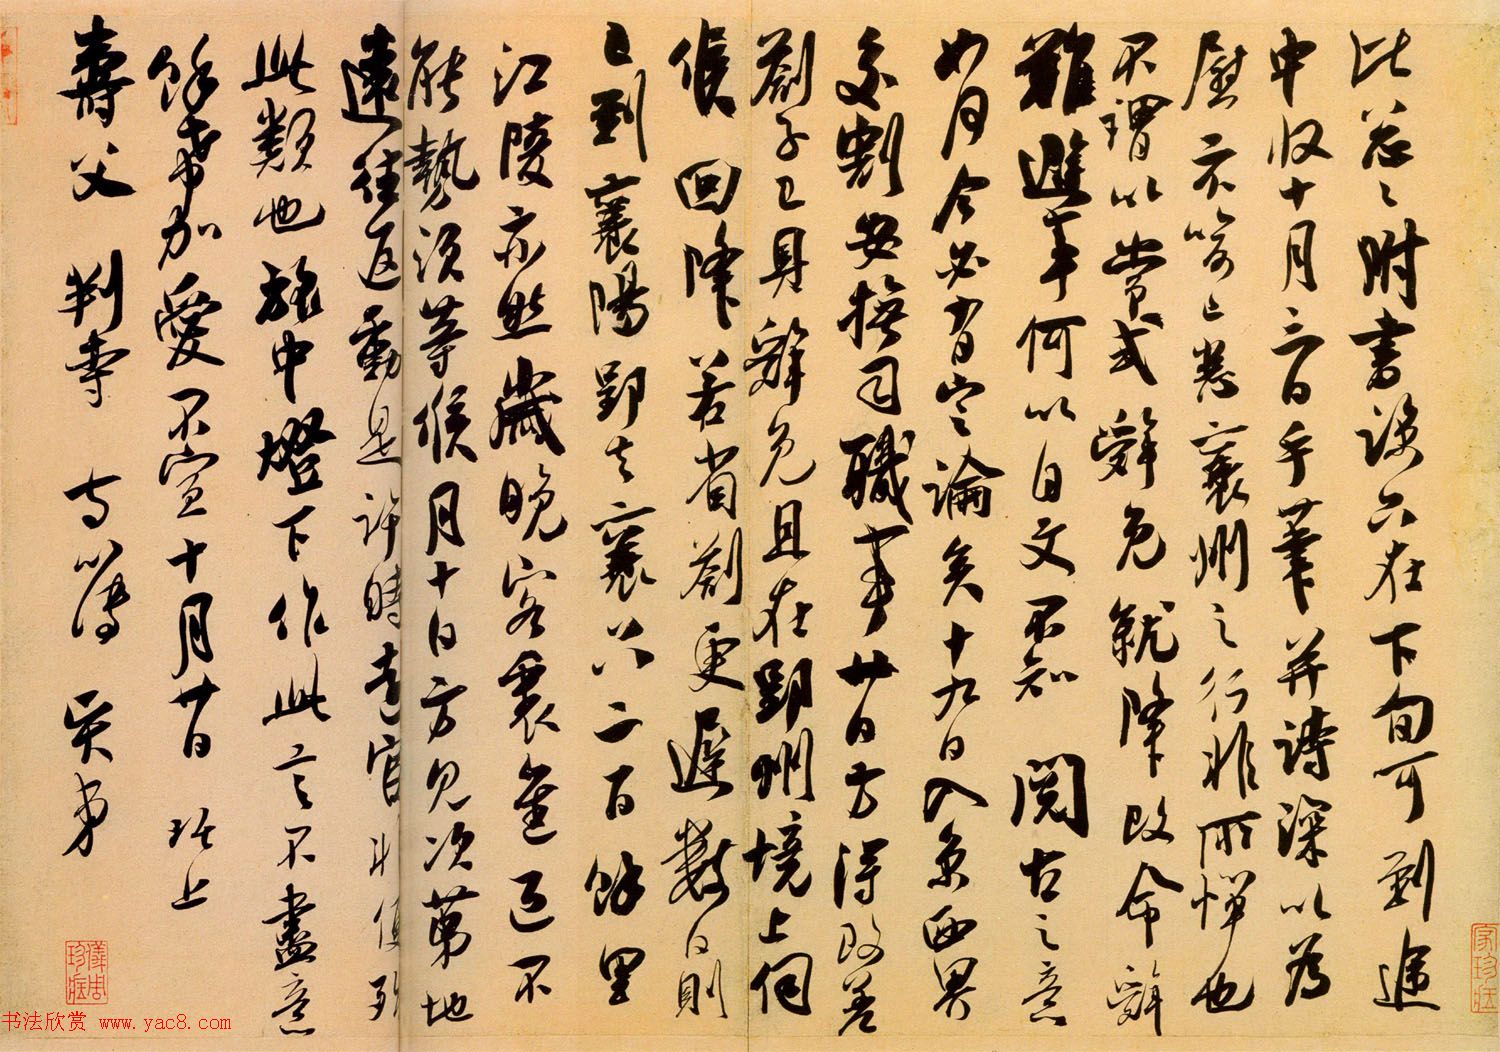 比忽忽附書後只在下旬可到途
中收十月三日手筆并詩深以爲
慰示喻已悉襄州之行非所憚也
不謂以嘗試辭免就降改命辭
難進事何以自文不知 閱古之意
如何今必有定論矣十九日入京西界
交割安撫司職事廿日方得改差
劄子已具辭免且在郢州境上伺
候 回降若省劄更遲數日則
已到襄陽郢去襄只二百餘里
江陵亦然歲晚客裏進退不
能勢須等候月十日方見次第地
遠往返動是許時走官
此類也旅中燈下作此言不盡意
餘希加愛不宣十月廿日 琚上
壽父 判寺 寺簿 賢弟
漢周珍
書法欣賞 www.yac8.com